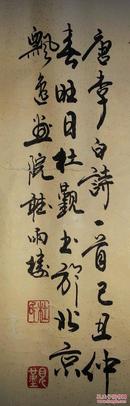 唐李白詩一首己丑仲
春旺日杜觀書於北京
飄逸畫院聽雨樓